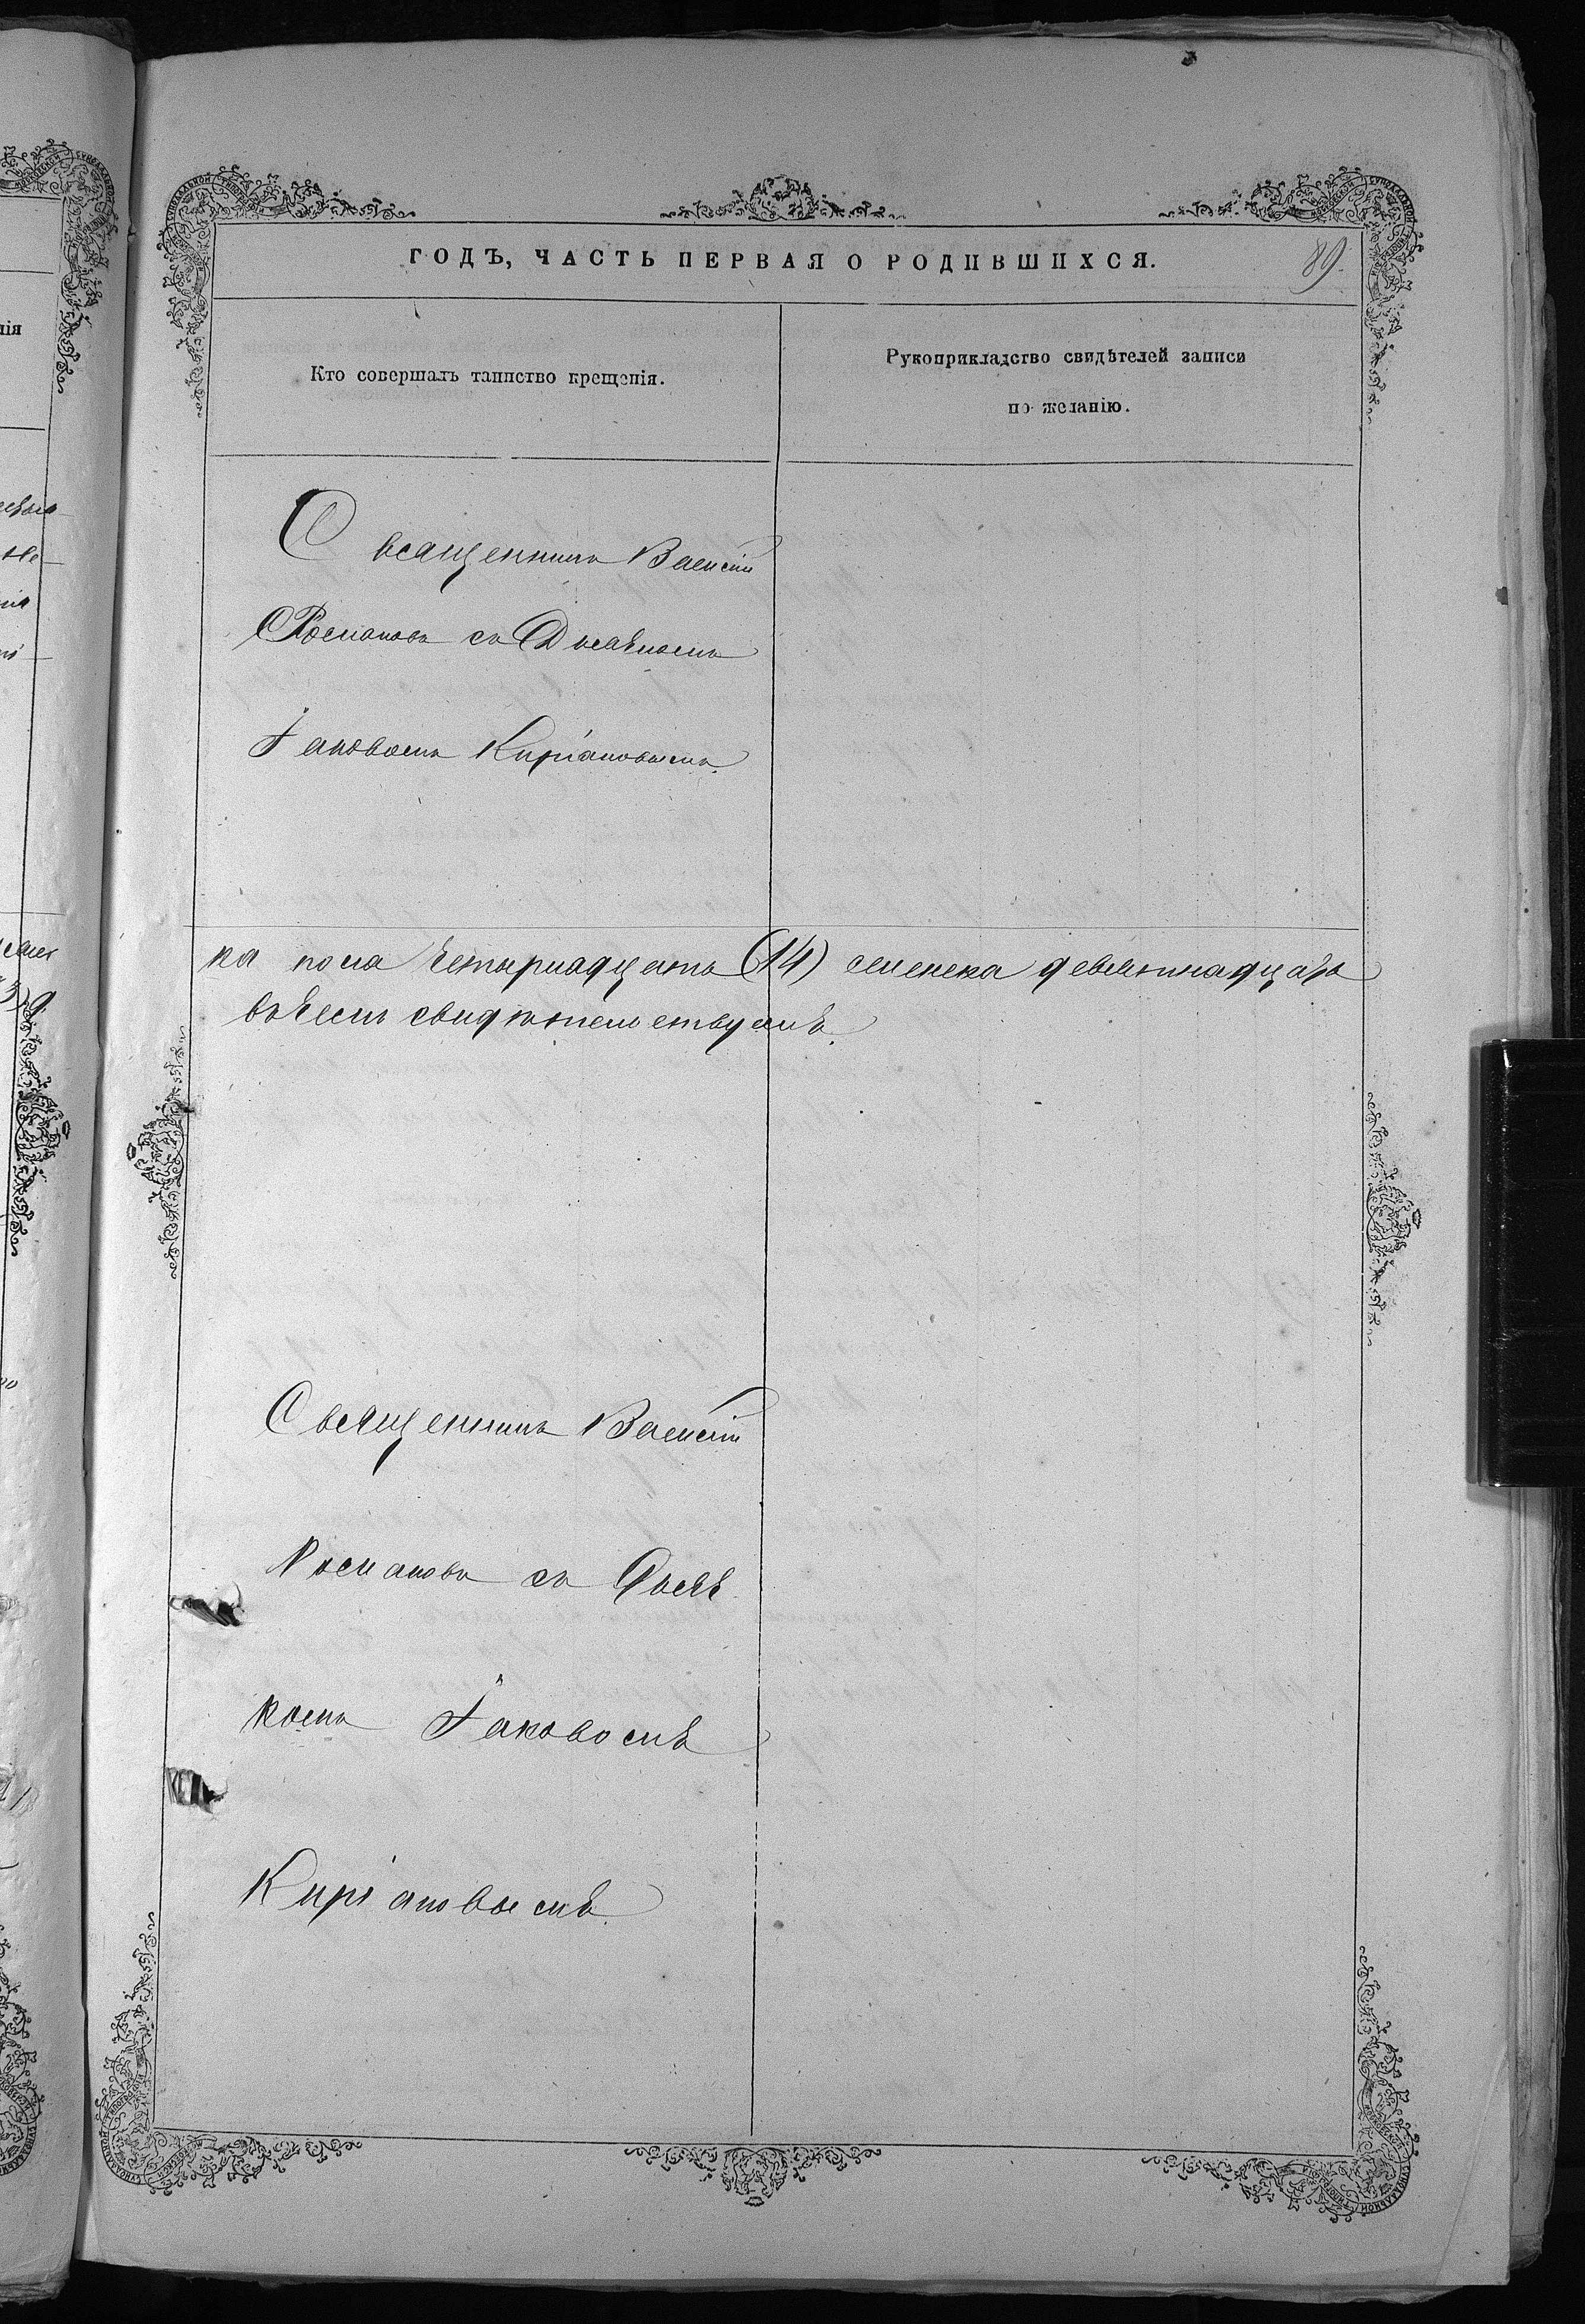 ГОДЪ, ЧАСТЬ ПЕРВАЯ О РОДИВШИХСЯ.
89.
Кто совершалъ таинство крещенія.
Рукоприкладство свидѣтелей записи
по желанію.
Священникъ
Романовъ съ Дьячкомъ
Іаковомъ Киріановымъ.
ка пола четырнадцать (14) женска девятнадцать
въ свидѣтельствуемъ.
Священникъ
Романовъ съ Дьяч
комъ Іаковомъ
Киріановымъ.